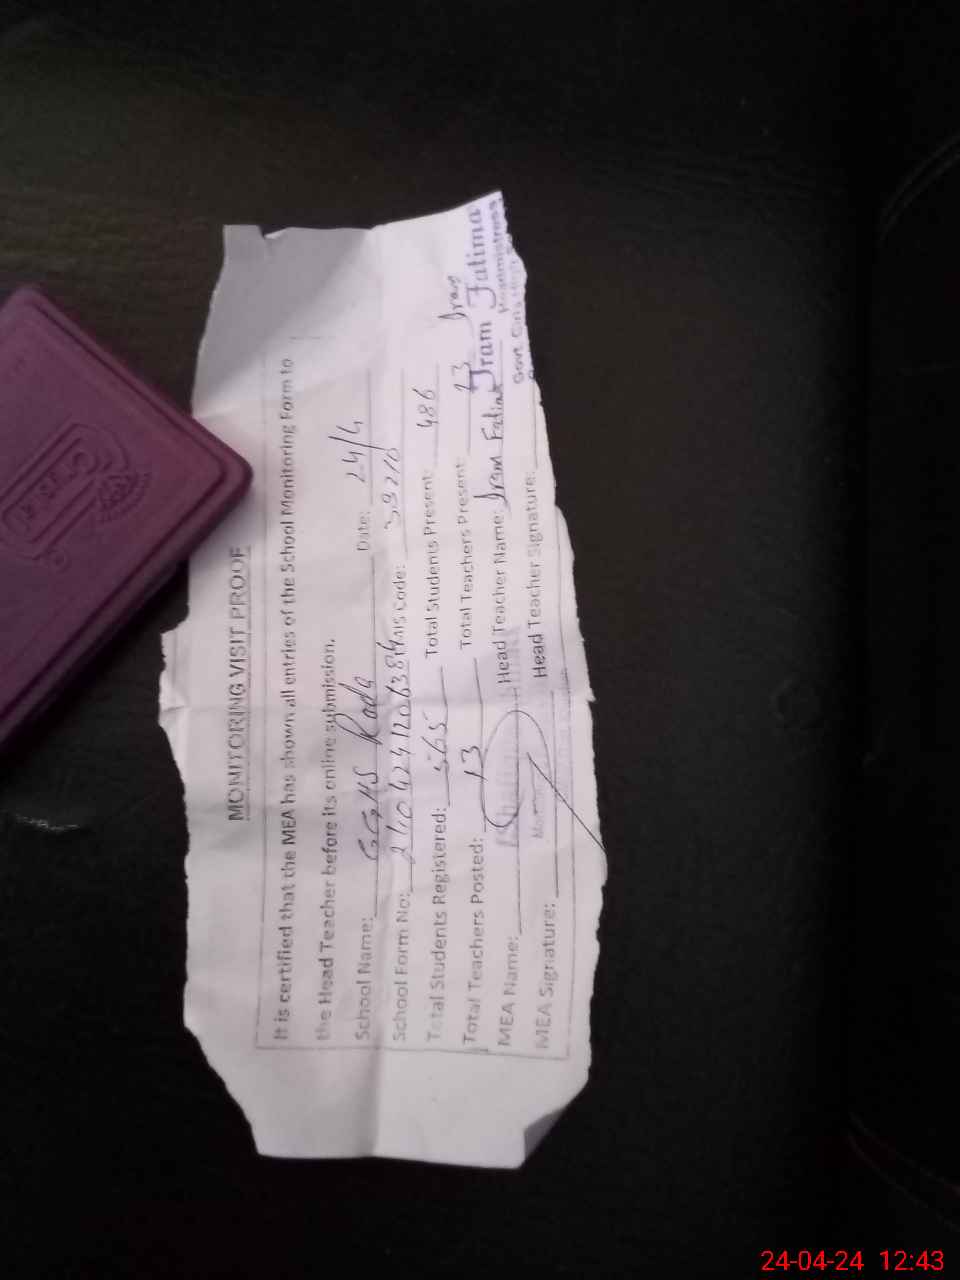 MONITORING VISIT PROOF
It is certified that the MEA has shown all entries of the School Monitoring Form to
the Head Teacher before its online submission.
School Name: GGHS Roda Date: 24/4
School Form No: EMIS Code:
Total Students Registered: 565 Total Students Present: 486
Total Teachers Posted: 13 Total Teachers Present: 13
MEA Name: Head Teacher Name: Iram Fatima
MEA Signature: Head Teacher Signature:
Iram
Iram Fatima
Headmistress
Govt. Girls High
24-04-24 12:43